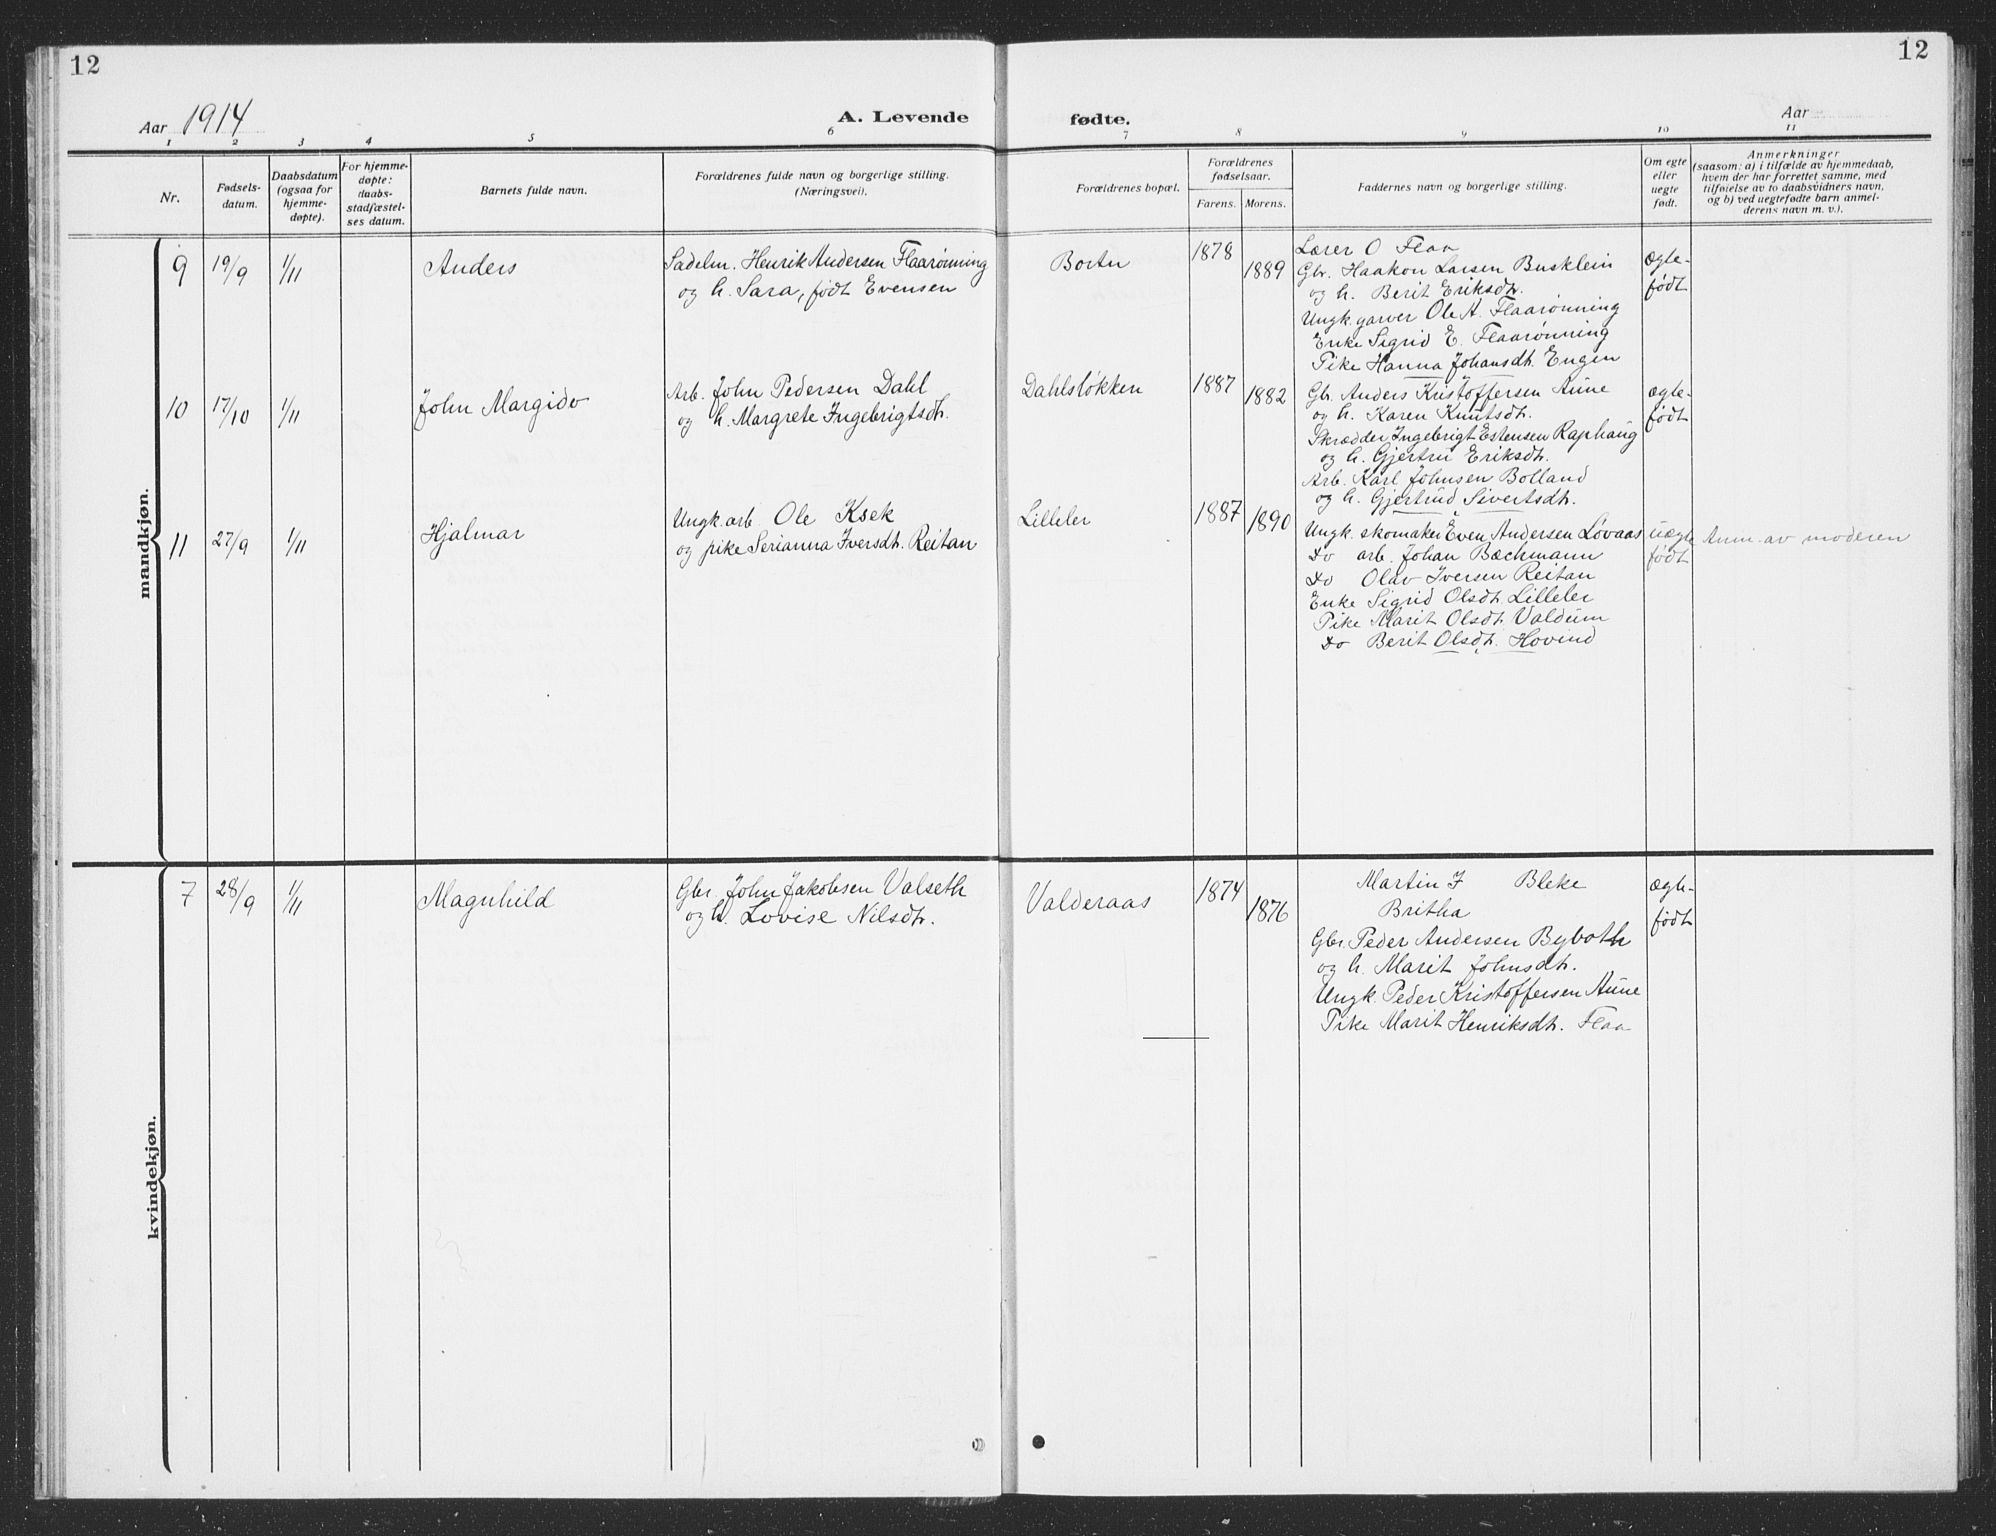 12
12
Aar 1914
A. Levende
fødte.
Aar
1 2 3 4 5 6 7 8 9 10 11
Nr.
Fødsels-
datum.
Daabsdatum
(ogsaa for
hjemme-
døpte).
For hjemme-
døpte:
daabs-
stadfæstel-
ses datum.
Barnets fulde navn.
Forældrenes fulde navn og borgerlige stilling.
(Næringsvei).
Forældrenes bopæl.
Forældrenes
fødselsaar.
Farens. Morens.
Faddernes navn og borgerlige stilling.
Om egte
eller
uegte
født.
Anmerkninger
(saasom: a) i tilfælde av hjemmedaab,
hvem der har forrettet samme, med
tilføielse av to daabsvidners navn,
og b) ved uegtefødte barn anmel-
derens navn m. v.).
mandkjøn.
9 19/9 1/11 Anders
Sadelm. Henrik Andersen Flaarønning
og h. Sara, født Evensen
Borten
1878
1889
Lærer O Flaa
Gbr. Haakon Larsen Busklein
og h. Berit Eriksdtr.
Ungk. garver Ole A. Flaarønning
Enke Sigrid E. Flaarønning
Pike Hanna Johansdtr. Engen
ægte-
født
10 17/10 1/11 John Margido
Arb. John Pedersen Dahl
og h. Margrete Ingebrigtsdtr.
Dahlsløkken
1887
1882
Gbr. Anders Kristoffersen Aune
og h. Karen Knutsdtr.
Skrædder Ingebrigt Estensen Raphaug
og h. Gjertru Eriksdtr.
Arb. Karl Johnsen Bolland
og h. Gjertrud Sivertsdtr.
ægte-
født
11 27/9 1/11 Hjalmar
Ungk. arb. Ole Ksek
og pike Serianna Iversdtr. Reitan
Lilleler
1887
1890
Ungk. skomaker Even Andersen Løvaas
Do arb. Johan Bæchmann
Do Olav Iversen Reitan
Enke Sigrid Olsdtr. Lilleler
Pike Marit Olsdtr. Valdum
Do Berit Olsdtr. Hovind
uægte
født
Anm. av moderen
kvindekjøn.
7 28/9 1/11 Magnhild
Gbr. John Jakobsen Valseth
og h. Lovise Nilsdtr.
Valderaas
1874
1876
Martin J Bleke
Britha
Gbr. Peder Andersen Byboth
og h. Marit Johnsdtr.
Ungk. Peder Kristoffersen Aune
Pike Marit Henriksdtr. Flaa
ægte-
født